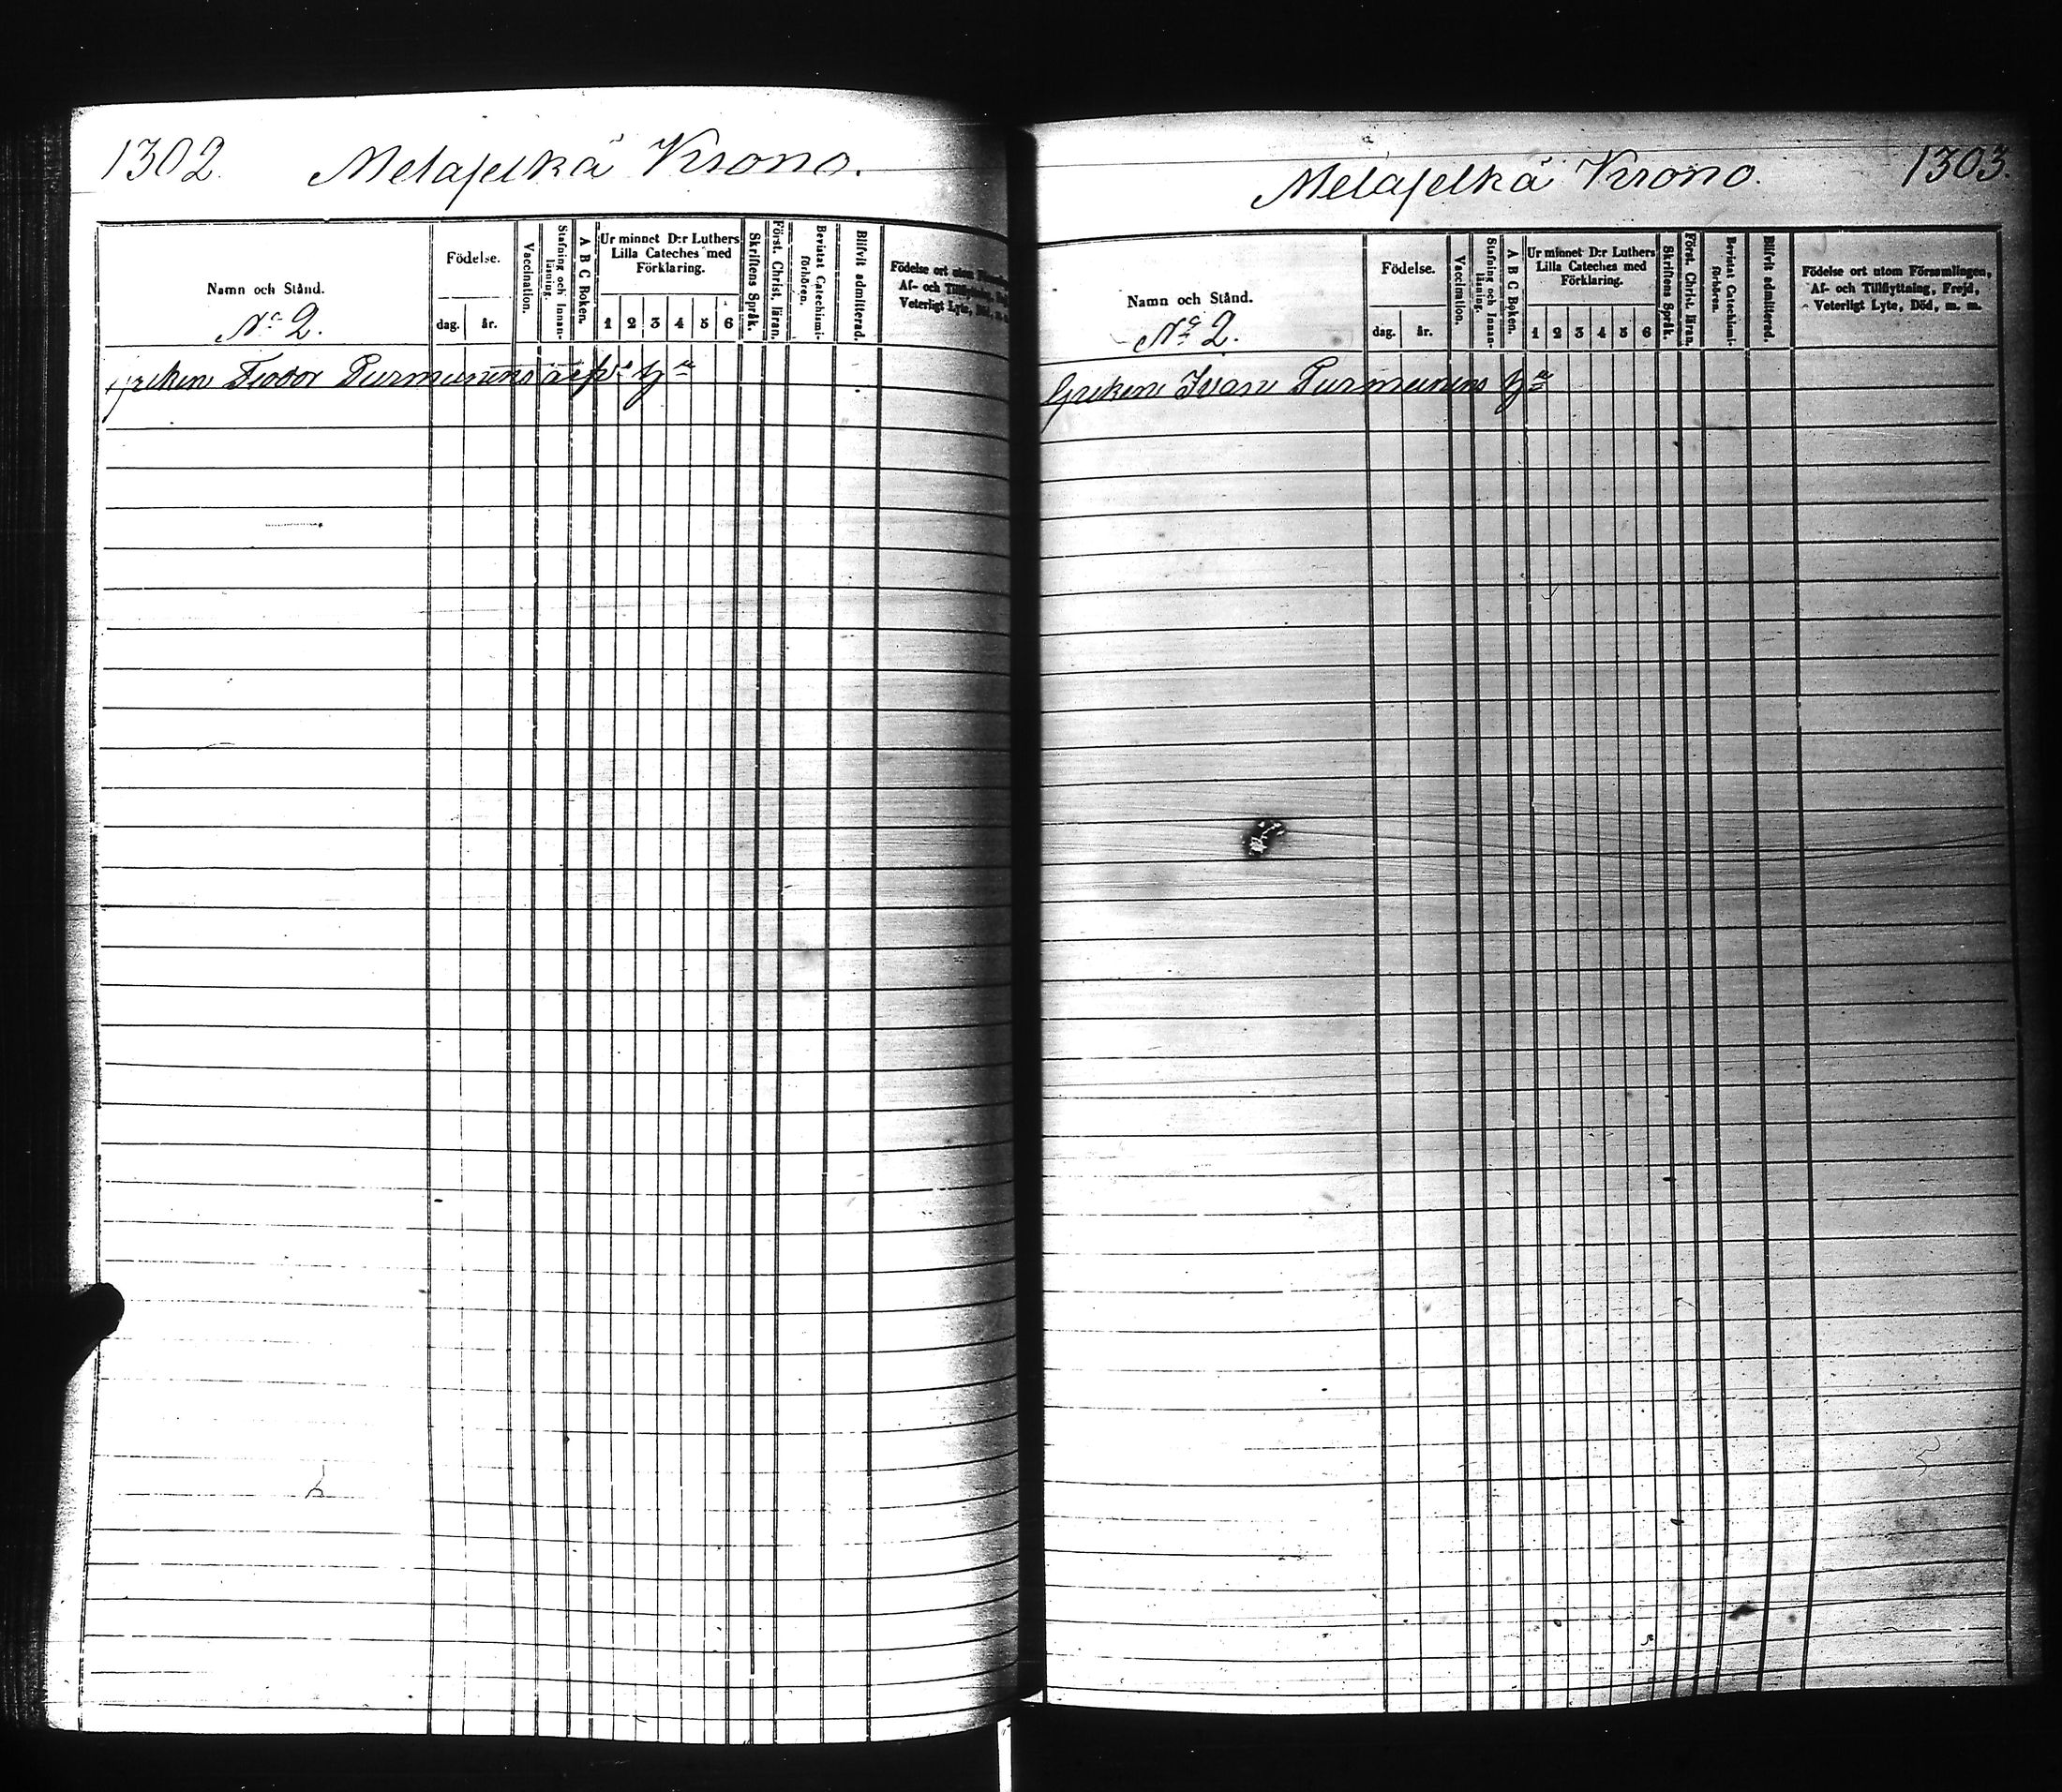 1302. Melaselkä Krono.
Namn och Stånd.
Nº 2.
Födelse.
dag. år.
Vaccination.
Stafning och Innanläsning.
A B C Boken.
Ur minnet D:r Luthers
Lilla Cateches med
Förklaring.
1 2 3 4 5 6
Skriftens Språk.
Först. Christ. läran.
Bevistat Catechismiförhören.
Blifvit admitterad.
Födelse ort utom
Af- och
Veterligt Lyte, Död,
Greken Feodor Purmunens
Melaselkä Krono. 1303.
Namn och Stånd.
Nº 2.
Födelse.
dag. år.
Vaccination.
Stafning och Innanläsning.
A B C Boken.
Ur minnet D:r Luthers
Lilla Cateches med
Förklaring.
1 2 3 4 5 6
Skriftens Språk.
Först. Christ. läran.
Bevistat Catechismiförhören.
Blifvit admitterad.
Födelse ort utom Församlingen,
Af- och Tillflyttning, Frejd,
Veterligt Lyte, Död, m. m.
Greken Ivan Purmunens